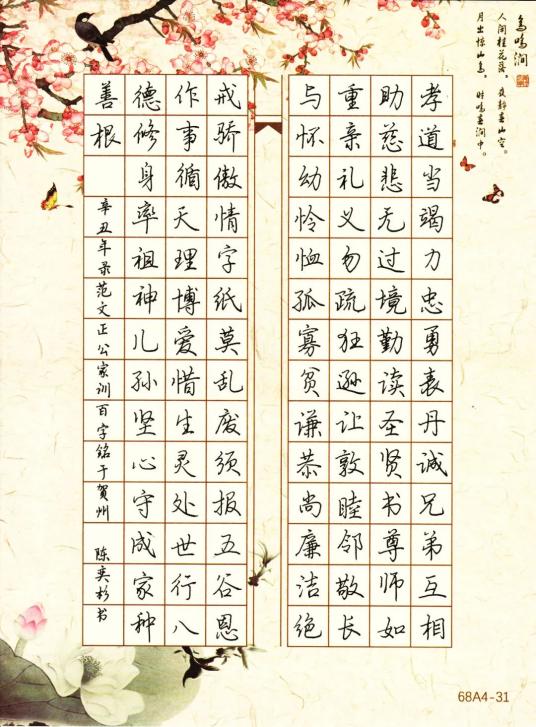 鸟鸣涧
人闲桂花落，夜静春山空。
月出惊山鸟，时鸣春涧中。
孝道当竭力忠勇表丹诚兄弟互相
助慈悲无过境勤读圣贤书尊师如
重亲礼义勿疏狂逊让敦睦邻敬长
与怀幼怜恤孤寡贫谦恭尚廉洁绝
戒骄傲情字纸莫乱废须报五谷恩
作事循天理博爱惜生灵处世行八
德修身率祖神儿孙坚心守成家种
善根
辛丑年录范文正公家训百字铭于贺州 陈奕杉书
68A4-31